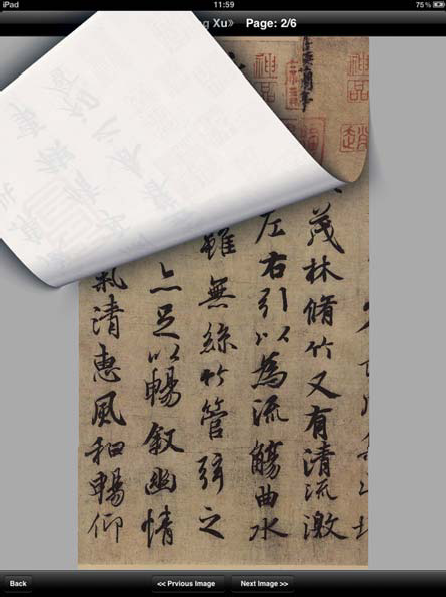 iPad 11:59 75%
ng Xu》 Page: 2/6
神品
神品
茂林脩竹又有清流激
左右引以為流觴曲水
雖無絲竹管弦之
亦足以暢敘幽情
氣清惠風和暢仰
Back << Prvious Image Next Image >>